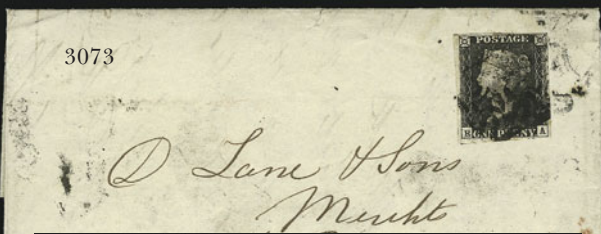 3073
POSTAGE
ONE PENNY A
D Lane & Sons
Mercht